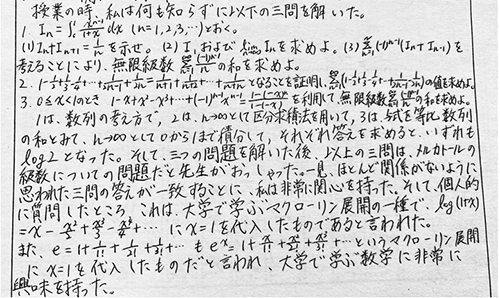 授業の時、私は何も知らずに以下の三問を解いた。
1. In=∫₀¹ xⁿ⁻¹/(1+x) dx (n=1,2,3,…)とおく。
(1) In+In+1=1/n を示せ。(2) I₁および lim n→∞ Inを求めよ。(3) Σ(-1)ⁿ⁻¹(In+In+1)を
考えることにより、無限級数 Σ (-1)ⁿ⁻¹/n の和を求めよ。
2. 1-1/2+1/3-1/4+…+1/(2n-1)-1/2n=1/(n+1)+1/(n+2)+…+1/2nとなることを証明し、Σ の値を求めよ。
3. 0≤x<1のとき 1-x+x²-x³+…+(-1)ⁿ⁻¹xⁿ⁻¹=(1-(-x)ⁿ)/(1-(-x))を利用して、無限級数 の和を求めよ。
1は、数列の考え方で、2は、n→∞として区分求積法を用いて、3は、与式を等比数列
の和とみて、n→∞として0から1まで積分して、それぞれ答を求めると、いずれも
log2となった。そして、三つの問題を解いた後、以上の三問は、メルカトールの
級数についての問題だと先生がおっしゃった。一見、ほとんど関係がないように
思われた三問の答えが一致することに、私は非常に関心を持った。そして、個人的
に質問したところ、これは、大学で学ぶマクローリン展開の一種で、log(1+x)
=x-x²/2+x³/3-x⁴/4+… にx=1を代入したものであると言われた。
また、e=1+1/1!+1/2!+1/3!+… も eˣ=1+x/1!+x²/2!+x³/3!+…というマクローリン展開
にx=1を代入したものだと言われ、大学で学ぶ数学に非常に
興味を持った。